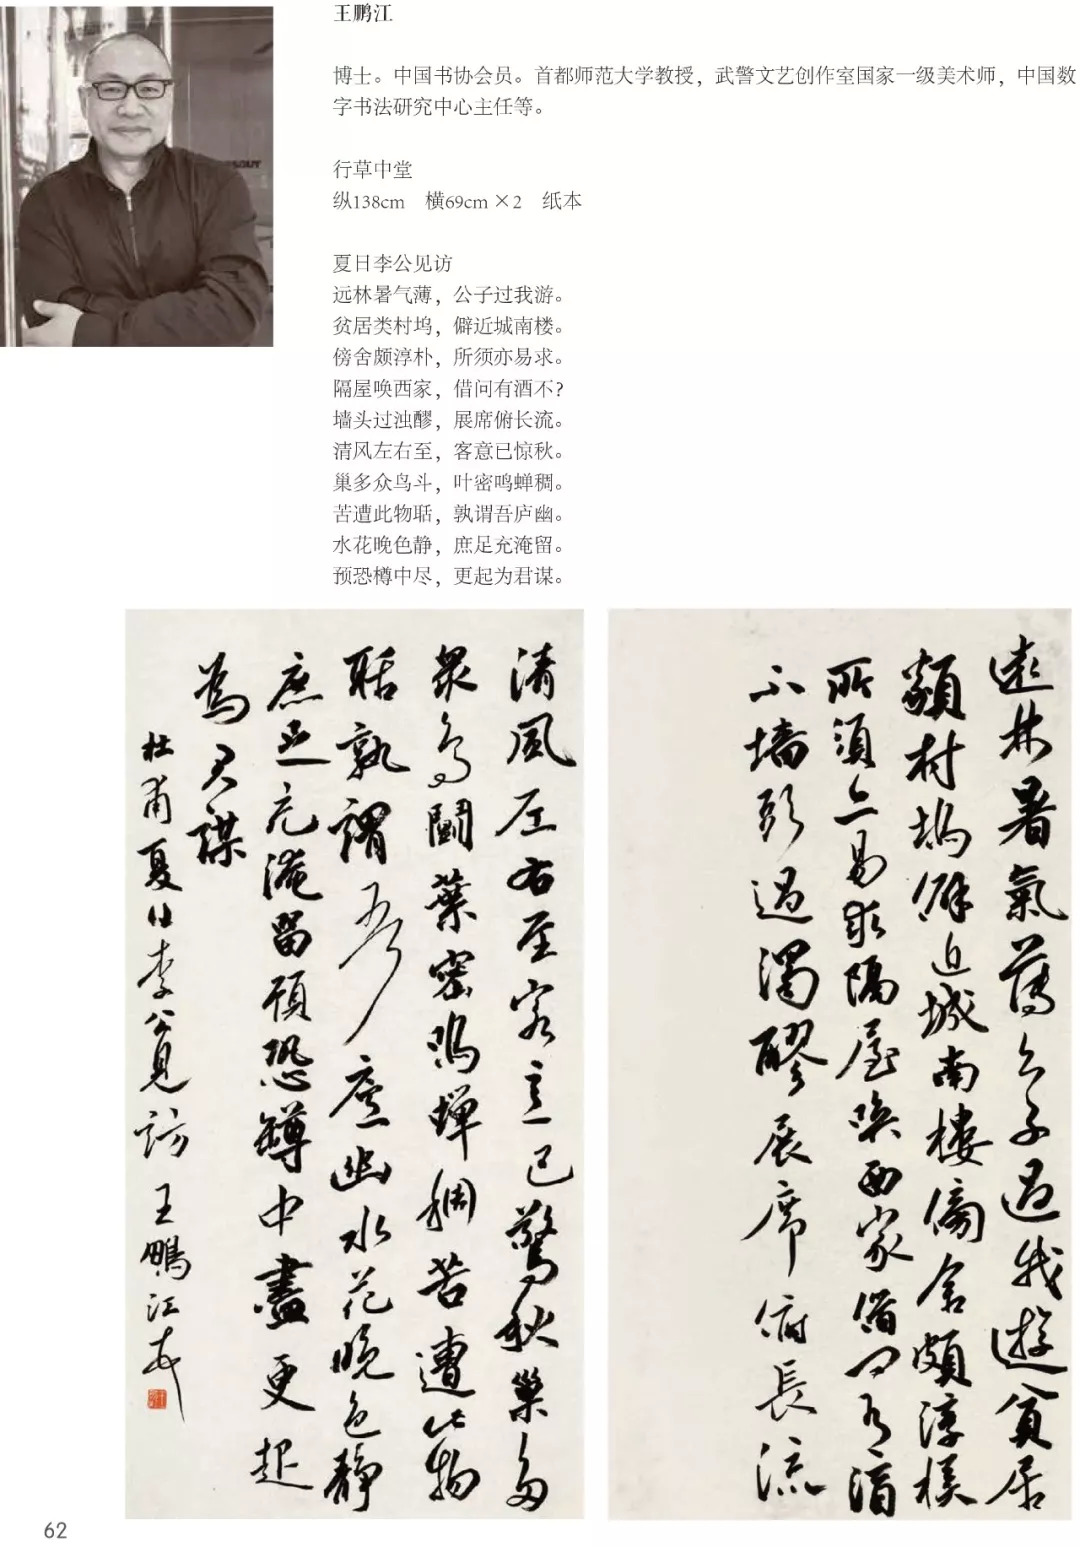 王鹏江
博士。中国书协会员。首都师范大学教授，武警文艺创作室国家一级美术师，中国数
字书法研究中心主任等。
行草中堂
纵138cm 横69cm×2 纸本
夏日李公见访
远林暑气薄，公子过我游。
贫居类村坞，僻近城南楼。
傍舍颇淳朴，所须亦易求。
隔屋唤西家，借问有酒不？
墙头过浊醪，展席俯长流。
清风左右至，客意已惊秋。
巢多众鸟斗，叶密鸣蝉稠。
苦遭此物聒，孰谓吾庐幽。
水花晚色静，庶足充淹留。
预恐樽中尽，更起为君谋。
遠林暑氣薄公子過我遊貧居
類村塢僻近城南樓傍舍頗淳樸
所須亦易求隔屋喚西家借問有酒
不墙頭過濁醪展席俯長流
清風左右至客意已驚秋巢多
衆鳥鬪葉密鳴蟬稠苦遭此物
聒孰謂吾廬幽水花晚色静
庶足充淹留預恐罇中盡更起
為君謀
杜甫夏日李公見訪 王鵬江
62